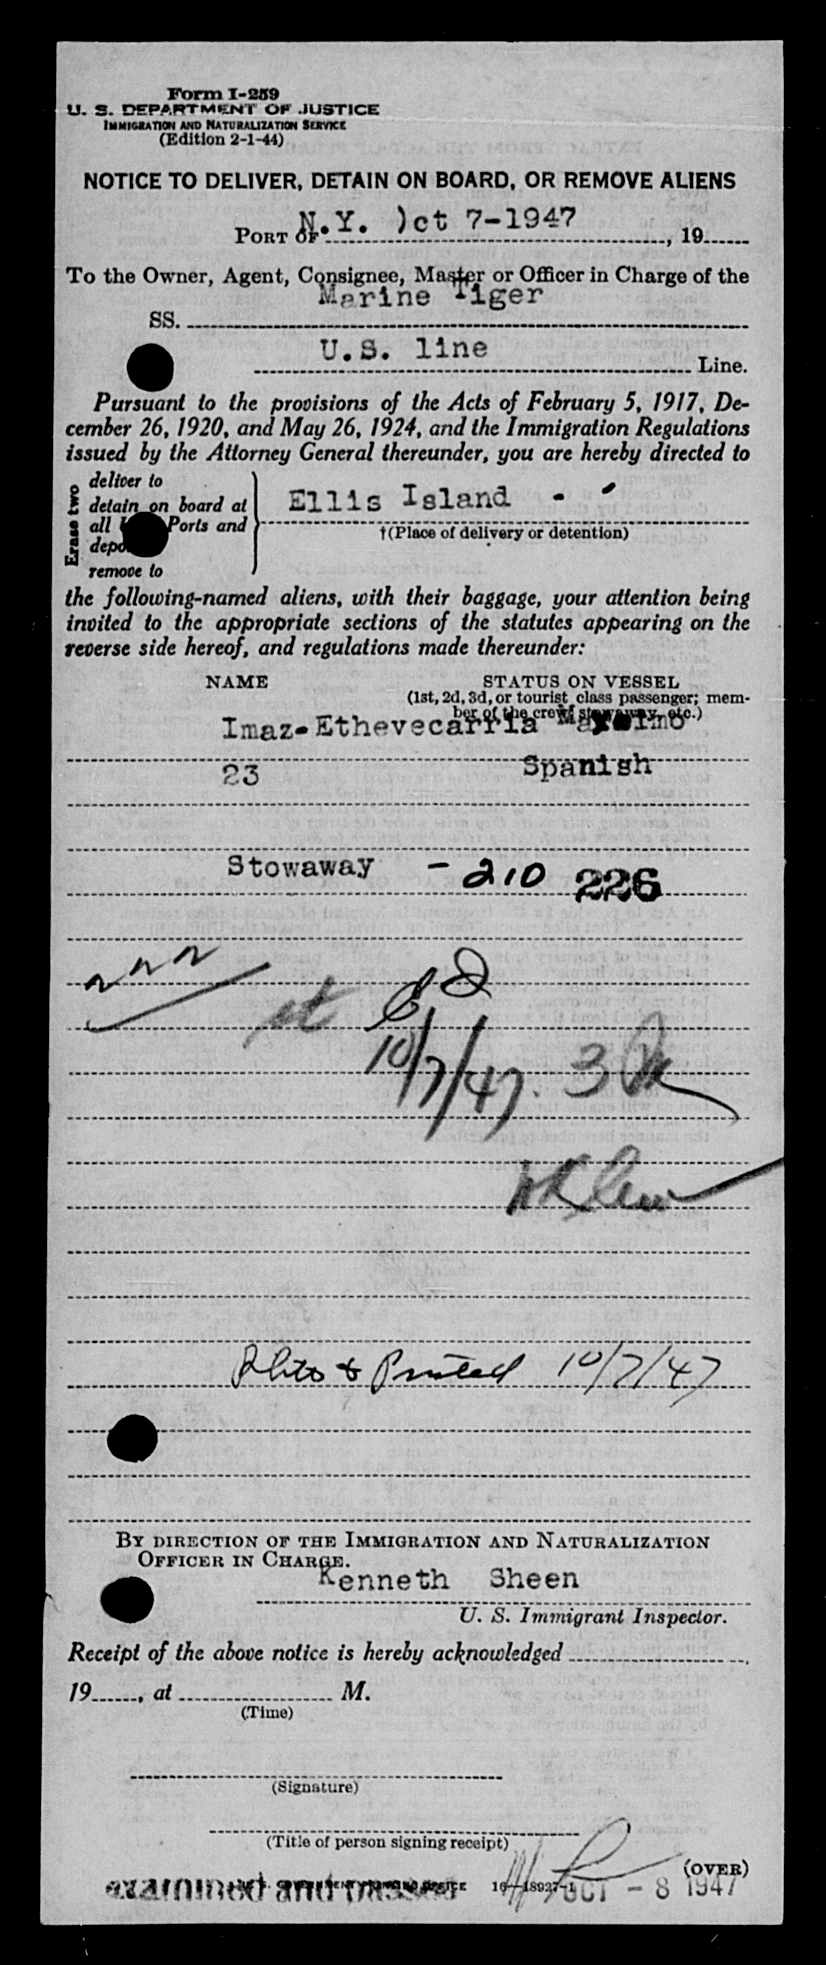 Form I-259
U. S. DEPARTMENT OF JUSTICE
IMMIGRATION AND NATURALIZATION SERVICE
(Edition 2-1-44)
NOTICE TO DELIVER, DETAIN ON BOARD, OR REMOVE ALIENS
PORT OF N.Y. )ct 7-1947, 19
To the Owner, Agent, Consignee, Master or Officer in Charge of the
SS. Marine Tiger
U.S. line Line.
Pursuant to the provisions of the Acts of February 5, 1917, De-
cember 26, 1920, and May 26, 1924, and the Immigration Regulations
issued by the Attorney General thereunder, you are hereby directed to
Erase two
deliver to
detain on board at
all Ports and
remove to
Ellis Island -
†(Place of delivery or detention)
the following-named aliens, with their baggage, your attention being
invited to the appropriate sections of the statutes appearing on the
reverse side hereof, and regulations made thereunder:
NAME STATUS ON VESSEL
(1st, 2d, 3d, or tourist class passenger; mem-
ber of the crew, stowaway, etc.)
Imaz-Ethevecarria
23 Spanish
Stowaway - 210 226
222
10/7/47. 3
Photo & Printed 10/7/47
BY DIRECTION OF THE IMMIGRATION AND NATURALIZATION
OFFICER IN CHARGE.
Kenneth Sheen
U. S. Immigrant Inspector.
Receipt of the above notice is hereby acknowledged
19, at M.
(Time)
(Signature)
(Title of person signing receipt)
(OVER)
examined and passed OCT - 8 1947